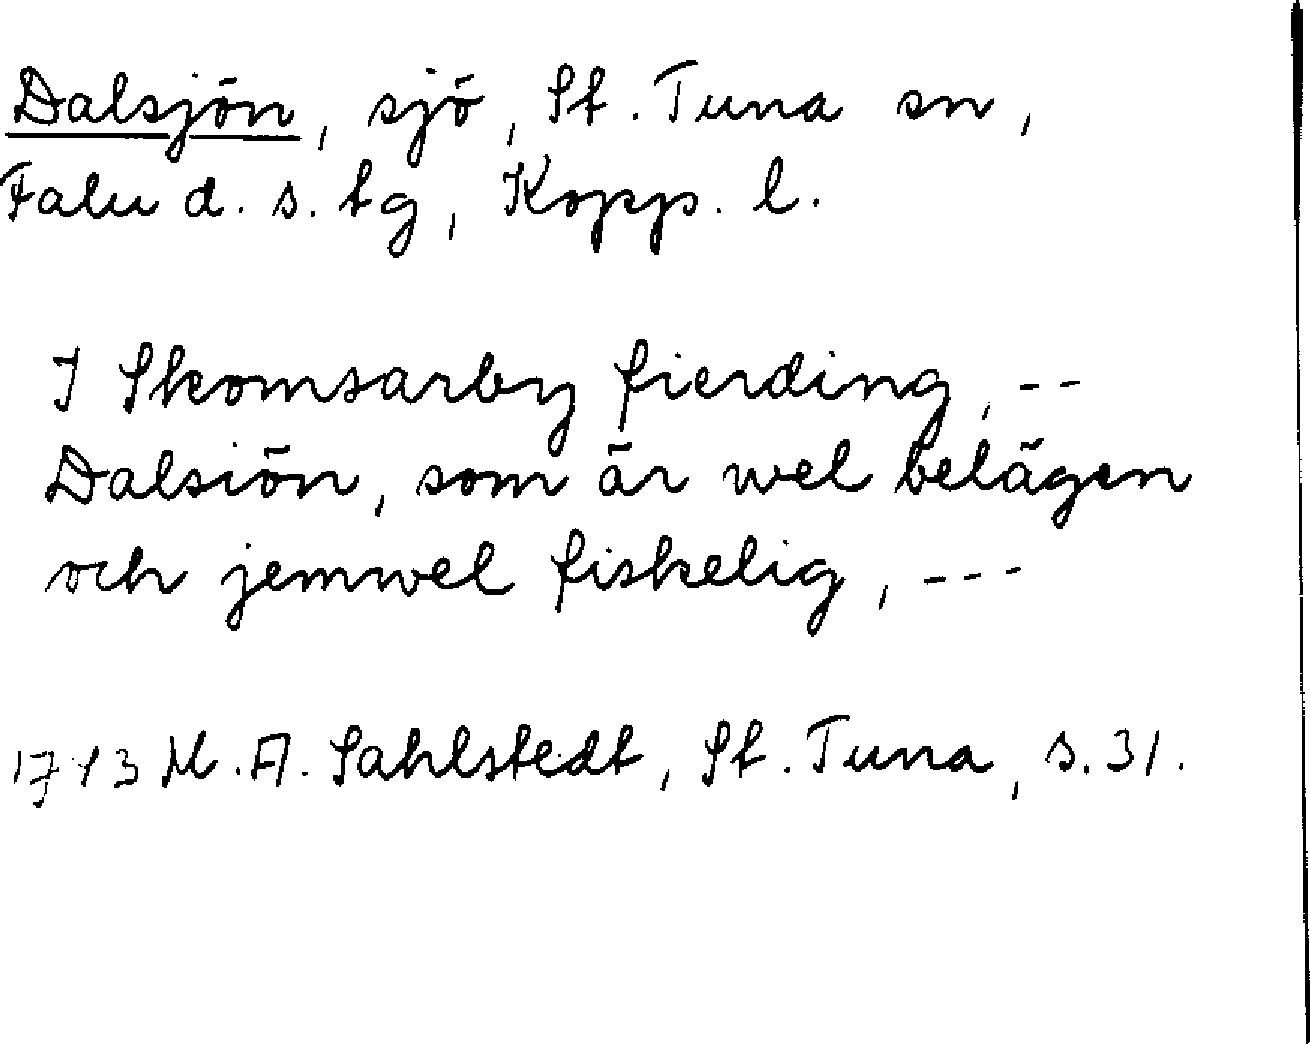 Dalsjön, sjö, St. Tuna sn,
Falu d. s. tg, Kopp. l.
I Skomsarby fierding, --
Dalsiön, som är wel belägen
och jemwel fiskelig, ---
M. A. Sahlstedt, St. Tuna, s. 31.